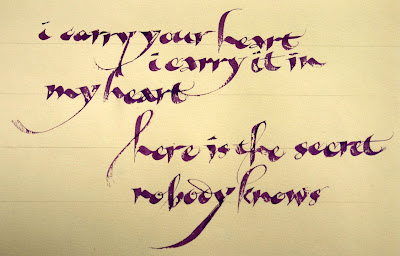 i carry your heart
i carry it in
my heart
here is the secret
nobody knows